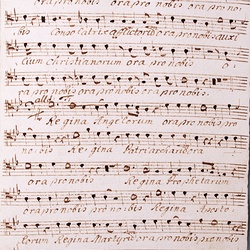 ora pro nobis ora pro no-
bis Consolatrix afflictorum ora pro nobis auxi
lium Christianorum ora pro nobis o
ra pro nobis ora pro nobis
Regina Angelorum ora pro no
no-bis Regina Patriarcharum
ora pro nobis Regina Prophetarum
ora pro nobis pro nobis Regina Aposto-
lorum Regina Martyrum ora pro nobis